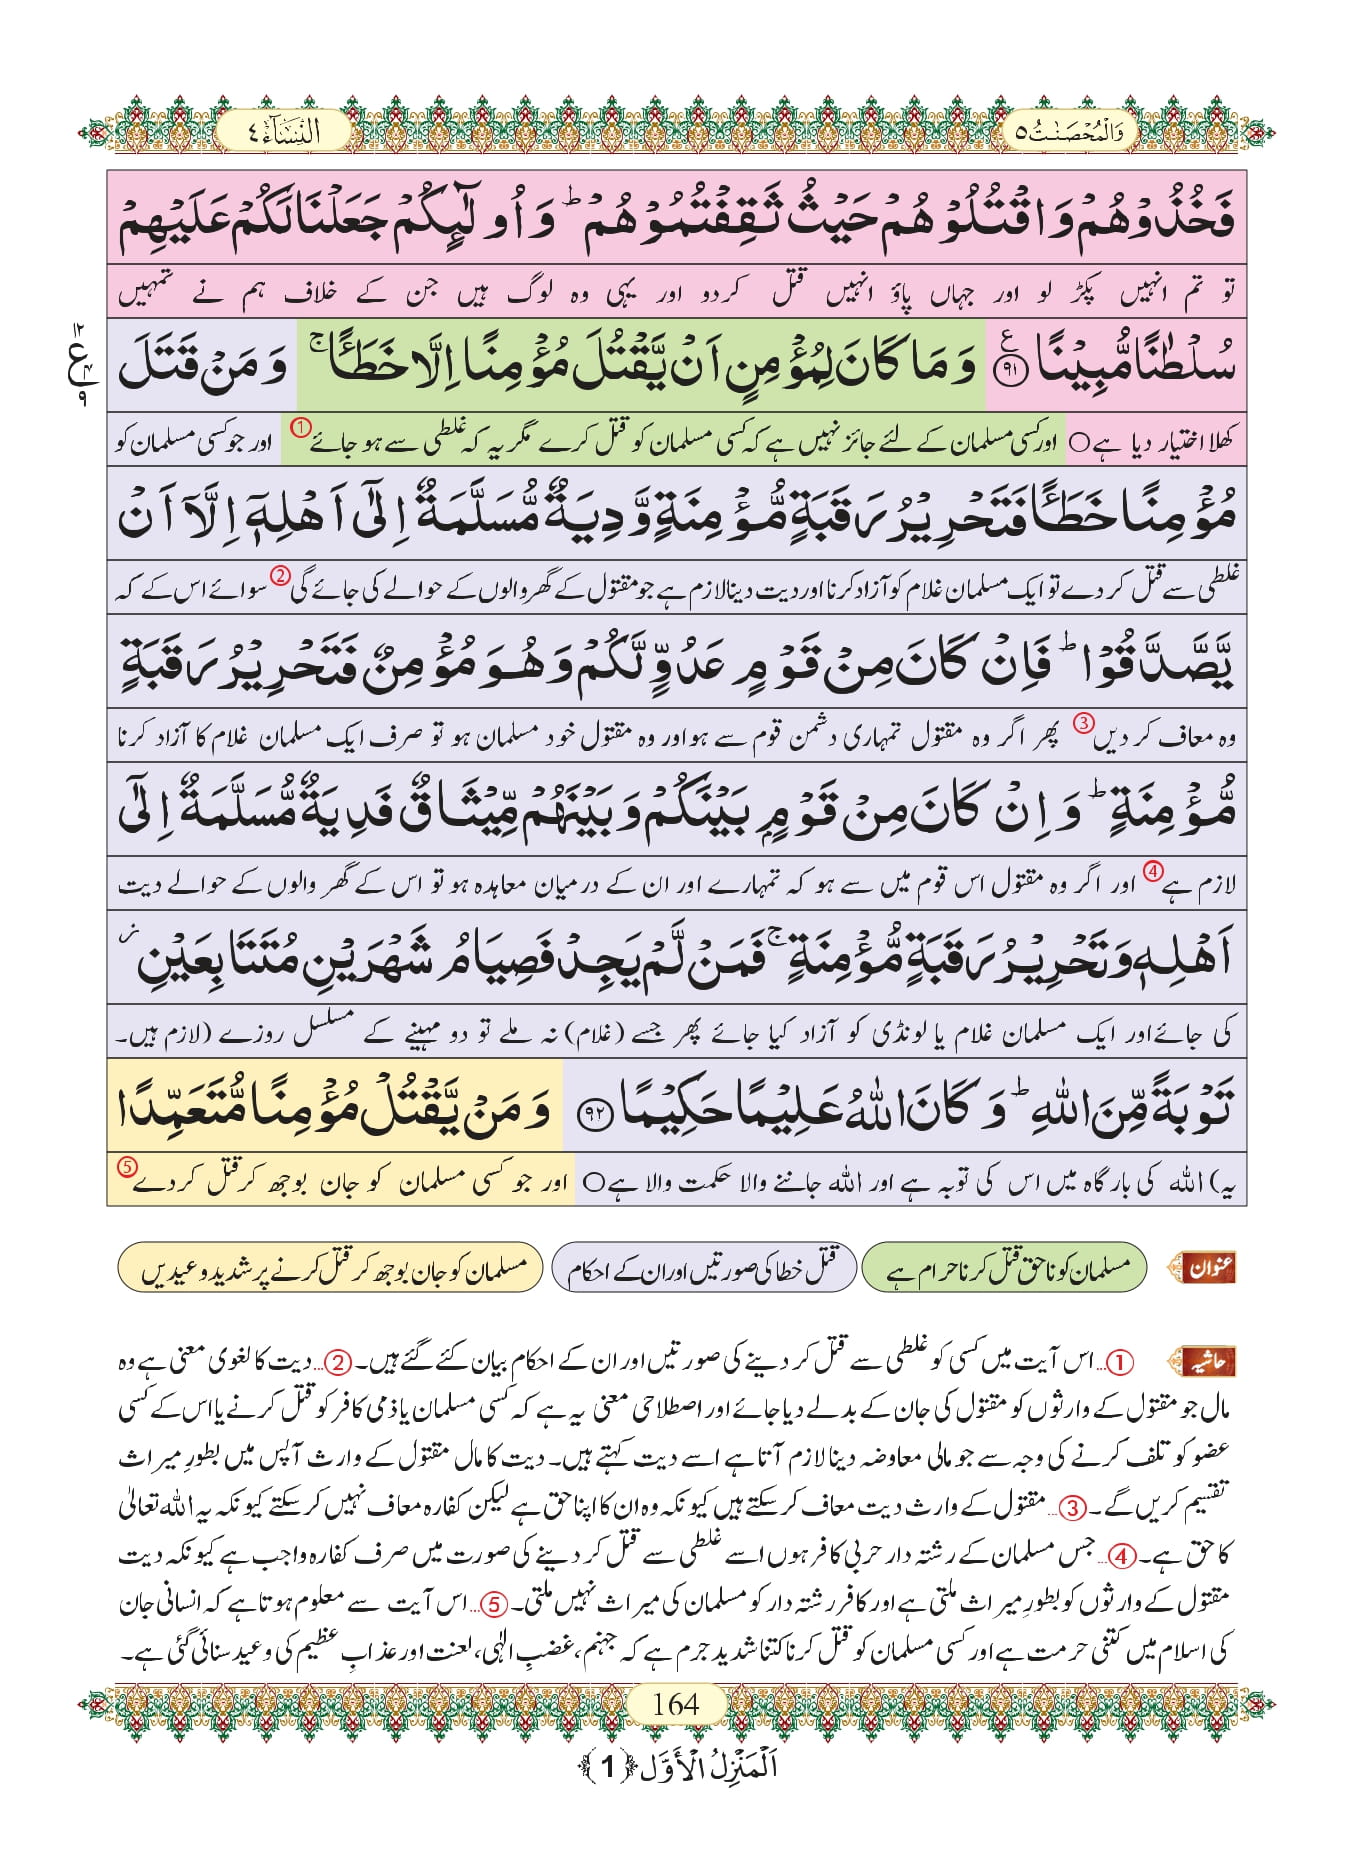 وَالْمُحْصَنٰتُ ٥
النِّسَآء ٤
فَخُذُوْهُمْ وَاقْتُلُوْهُمْ حَیْثُ ثَقِفْتُمُوْهُمْ ؕ وَ اُولٰٓىٕكُمْ جَعَلْنَا لَكُمْ عَلَیْهِمْ
تو تم انہیں پکڑ لو اور جہاں پاؤ انہیں قتل کردو اور یہی وہ لوگ ہیں جن کے خلاف ہم نے تمہیں
سُلْطٰنًا مُّبِیْنًا ﴿۹۱﴾ ع وَ مَا كَانَ لِمُؤْمِنٍ اَنْ یَّقْتُلَ مُؤْمِنًا اِلَّا خَطَــٴًـا ۚ وَ مَنْ قَتَلَ
۱۲ ع ۴ ۹
کھلا اختیار دیا ہے○ اور کسی مسلمان کے لئے جائز نہیں ہے کہ کسی مسلمان کو قتل کرے مگر یہ کہ غلطی سے ہو جائے① اور جو کسی مسلمان کو
مُؤْمِنًا خَطَــٴًـا فَتَحْرِیْرُ رَقَبَةٍ مُّؤْمِنَةٍ وَّ دِیَةٌ مُّسَلَّمَةٌ اِلٰۤى اَهْلِهٖۤ اِلَّاۤ اَنْ
غلطی سے قتل کر دے تو ایک مسلمان غلام کو آزاد کرنا اور دیت دینا لازم ہے جو مقتول کے گھر والوں کے حوالے کی جائے گی② سوائے اس کے کہ
یَّصَّدَّقُوْا ؕ فَاِنْ كَانَ مِنْ قَوْمٍ عَدُوٍّ لَّكُمْ وَ هُوَ مُؤْمِنٌ فَتَحْرِیْرُ رَقَبَةٍ
وہ معاف کر دیں③ پھر اگر وہ مقتول تمہاری دشمن قوم سے ہو اور وہ مقتول خود مسلمان ہو تو صرف ایک مسلمان غلام کا آزاد کرنا
مُّؤْمِنَةٍ ؕ وَ اِنْ كَانَ مِنْ قَوْمٍۭ بَیْنَكُمْ وَ بَیْنَهُمْ مِّیْثَاقٌ فَدِیَةٌ مُّسَلَّمَةٌ اِلٰۤى
لازم ہے④ اور اگر وہ مقتول اس قوم میں سے ہو کہ تمہارے اور ان کے درمیان معاہدہ ہو تو اس کے گھر والوں کے حوالے دیت
اَهْلِهٖ وَ تَحْرِیْرُ رَقَبَةٍ مُّؤْمِنَةٍ ۚ فَمَنْ لَّمْ یَجِدْ فَصِیَامُ شَهْرَیْنِ مُتَتَابِعَیْنِ ؗ
کی جائے اور ایک مسلمان غلام یا لونڈی کو آزاد کیا جائے پھر جسے (غلام) نہ ملے تو دو مہینے کے مسلسل روزے (لازم ہیں۔
تَوْبَةً مِّنَ اللّٰهِ ؕ وَ كَانَ اللّٰهُ عَلِیْمًا حَكِیْمًا ﴿۹۲﴾ وَ مَنْ یَّقْتُلْ مُؤْمِنًا مُّتَعَمِّدًا
یہ) اللہ کی بارگاہ میں اس کی توبہ ہے اور اللہ جاننے والا حکمت والا ہے○ اور جو کسی مسلمان کو جان بوجھ کر قتل کردے⑤
عنوان مسلمان کو ناحق قتل کرنا حرام ہے قتل خطا کی صورتیں اور ان کے احکام مسلمان کو جان بوجھ کر قتل کرنے پر شدید وعیدیں
حاشیہ ①…اس آیت میں کسی کو غلطی سے قتل کر دینے کی صورتیں اور ان کے احکام بیان کئے گئے ہیں۔ ②…دیت کا لغوی معنی ہے وہ
مال جو مقتول کے وارثوں کو مقتول کی جان کے بدلے دیا جائے اور اصطلاحی معنی یہ ہے کہ کسی مسلمان یا ذمی کافر کو قتل کرنے یا اس کے کسی
عضو کو تلف کرنے کی وجہ سے جو مالی معاوضہ دینا لازم آتا ہے اسے دیت کہتے ہیں۔ دیت کا مال مقتول کے وارث آپس میں بطورِ میراث
تقسیم کریں گے۔ ③…مقتول کے وارث دیت معاف کر سکتے ہیں کیونکہ وہ ان کا اپنا حق ہے لیکن کفارہ معاف نہیں کر سکتے کیونکہ یہ اللہ تعالیٰ
کا حق ہے۔ ④…جس مسلمان کے رشتہ دار حربی کافر ہوں اسے غلطی سے قتل کر دینے کی صورت میں صرف کفارہ واجب ہے کیونکہ دیت
مقتول کے وارثوں کو بطورِ میراث ملتی ہے اور کافر رشتہ دار کو مسلمان کی میراث نہیں ملتی۔ ⑤…اس آیت سے معلوم ہوتا ہے کہ انسانی جان
کی اسلام میں کتنی حرمت ہے اور کسی مسلمان کو قتل کرنا کتنا شدید جرم ہے کہ جہنم، غضبِ الٰہی، لعنت اور عذابِ عظیم کی وعید سنائی گئی ہے۔
164
اَلْمَنْزِلُ الْاَوَّل ﴿1﴾